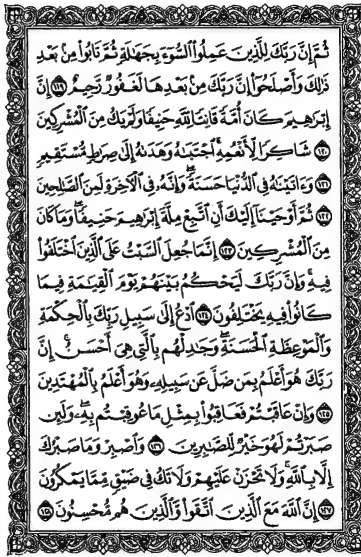 ثُمَّ إِنَّ رَبَّكَ لِلَّذِينَ عَمِلُوا۟ ٱلسُّوٓءَ بِجَهَٰلَةٍ ثُمَّ تَابُوا۟ مِنۢ بَعْدِ
ذَٰلِكَ وَأَصْلَحُوٓا۟ إِنَّ رَبَّكَ مِنۢ بَعْدِهَا لَغَفُورٌ رَّحِيمٌ ۝١١٩ إِنَّ
إِبْرَٰهِيمَ كَانَ أُمَّةً قَانِتًا لِّلَّهِ حَنِيفًا وَلَمْ يَكُ مِنَ ٱلْمُشْرِكِينَ
۝١٢٠ شَاكِرًا لِّأَنْعُمِهِ ٱجْتَبَىٰهُ وَهَدَىٰهُ إِلَىٰ صِرَٰطٍ مُّسْتَقِيمٍ
۝١٢١ وَءَاتَيْنَٰهُ فِى ٱلدُّنْيَا حَسَنَةً وَإِنَّهُۥ فِى ٱلْءَاخِرَةِ لَمِنَ ٱلصَّٰلِحِينَ
۝١٢٢ ثُمَّ أَوْحَيْنَآ إِلَيْكَ أَنِ ٱتَّبِعْ مِلَّةَ إِبْرَٰهِيمَ حَنِيفًا وَمَا كَانَ
مِنَ ٱلْمُشْرِكِينَ ۝١٢٣ إِنَّمَا جُعِلَ ٱلسَّبْتُ عَلَى ٱلَّذِينَ ٱخْتَلَفُوا۟
فِيهِ وَإِنَّ رَبَّكَ لَيَحْكُمُ بَيْنَهُمْ يَوْمَ ٱلْقِيَٰمَةِ فِيمَا
كَانُوا۟ فِيهِ يَخْتَلِفُونَ ۝١٢٤ ٱدْعُ إِلَىٰ سَبِيلِ رَبِّكَ بِٱلْحِكْمَةِ
وَٱلْمَوْعِظَةِ ٱلْحَسَنَةِ وَجَٰدِلْهُم بِٱلَّتِى هِىَ أَحْسَنُ إِنَّ
رَبَّكَ هُوَ أَعْلَمُ بِمَن ضَلَّ عَن سَبِيلِهِۦ وَهُوَ أَعْلَمُ بِٱلْمُهْتَدِينَ
۝١٢٥ وَإِنْ عَاقَبْتُمْ فَعَاقِبُوا۟ بِمِثْلِ مَا عُوقِبْتُم بِهِۦ وَلَئِن
صَبَرْتُمْ لَهُوَ خَيْرٌ لِّلصَّٰبِرِينَ ۝١٢٦ وَٱصْبِرْ وَمَا صَبْرُكَ
إِلَّا بِٱللَّهِ وَلَا تَحْزَنْ عَلَيْهِمْ وَلَا تَكُ فِى ضَيْقٍ مِّمَّا يَمْكُرُونَ
۝١٢٧ إِنَّ ٱللَّهَ مَعَ ٱلَّذِينَ ٱتَّقَوا۟ وَّٱلَّذِينَ هُم مُّحْسِنُونَ ۝١٢٨